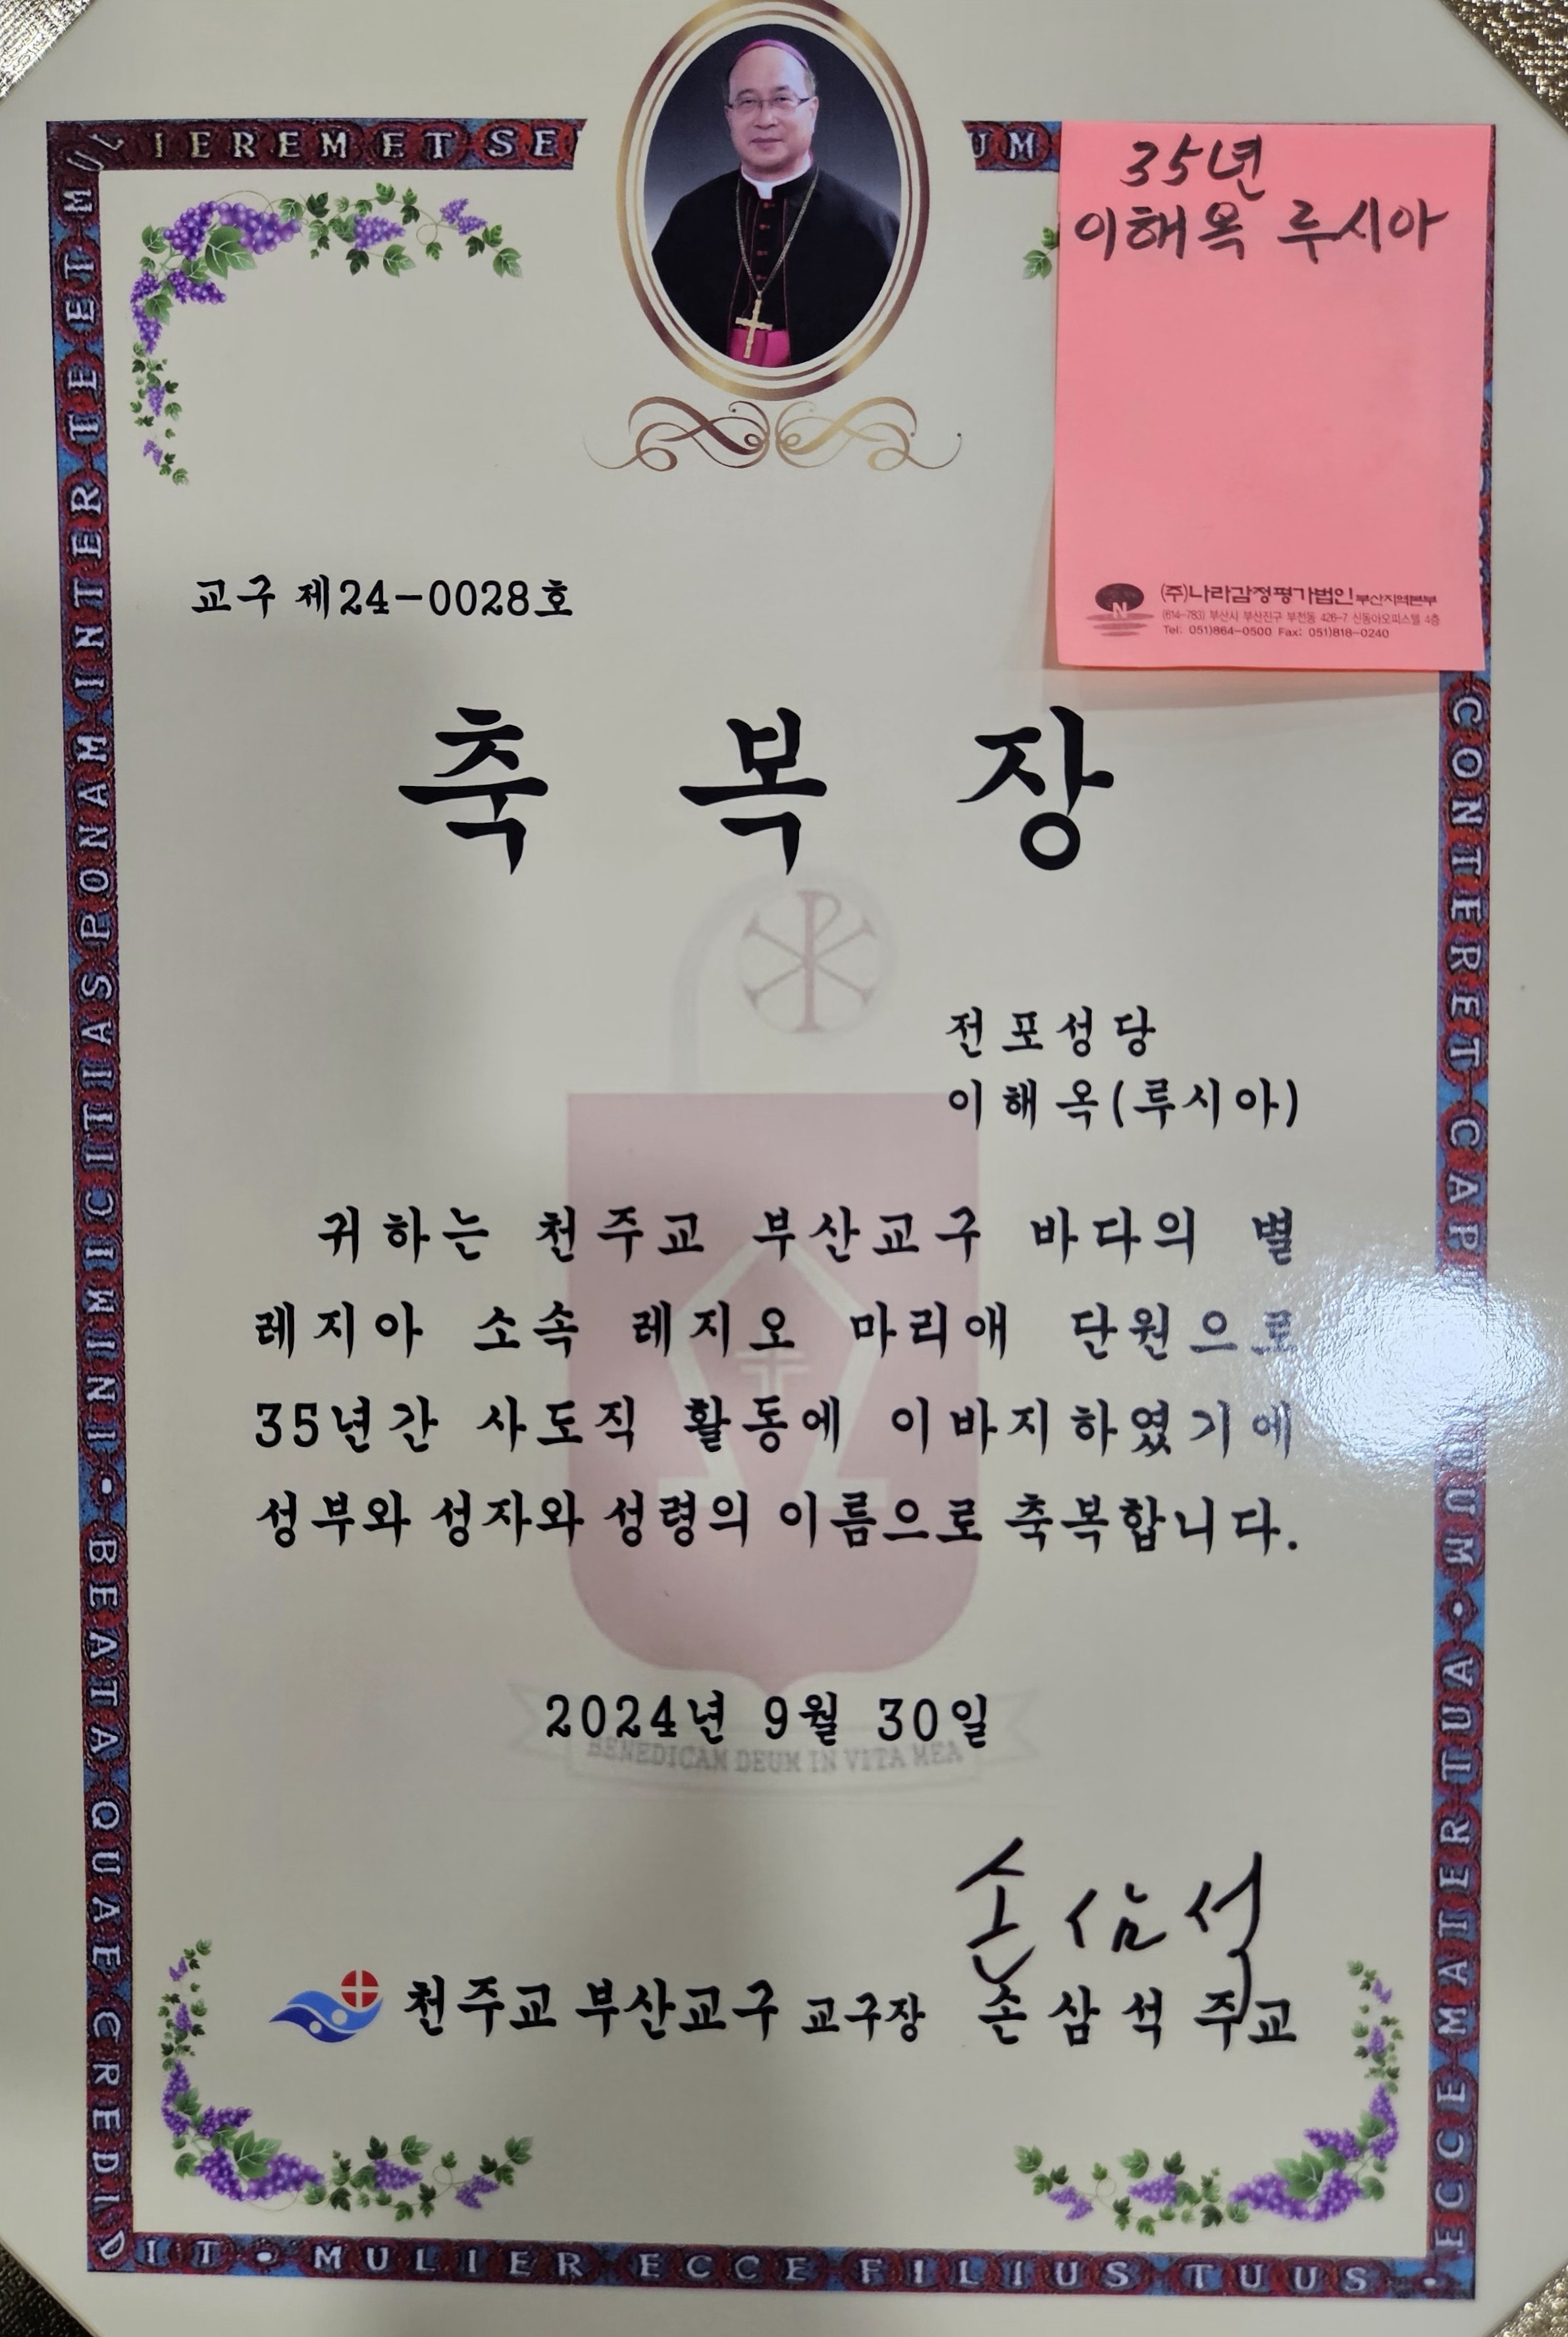 IEREM ET SE
UM
35년
이해옥 루시아
(주)나라감정평가법인 부산지역본부
(614-783) 부산시 부산진구 부전동 426-7 신동아오피스텔 4층
Tel: 051)864-0500 Fax: 051)818-0240
교구 제24-0028호
축 복 장
전포성당
이해옥(루시아)
귀하는 천주교 부산교구 바다의 별
레지아 소속 레지오 마리애 단원으로
35년간 사도직 활동에 이바지하였기에
성부와 성자와 성령의 이름으로 축복합니다.
2024년 9월 30일
BENEDICAM DEUM IN VITA MEA
손삼석
천주교 부산교구 교구장 손 삼 석 주교
INIMICITIAS PONAM INTER TE ET MUL
BEATA QUAE CREDIDIT • MULIER ECCE FILIUS TUUS •
ECCE MATER TUA •
CONTERET CAP